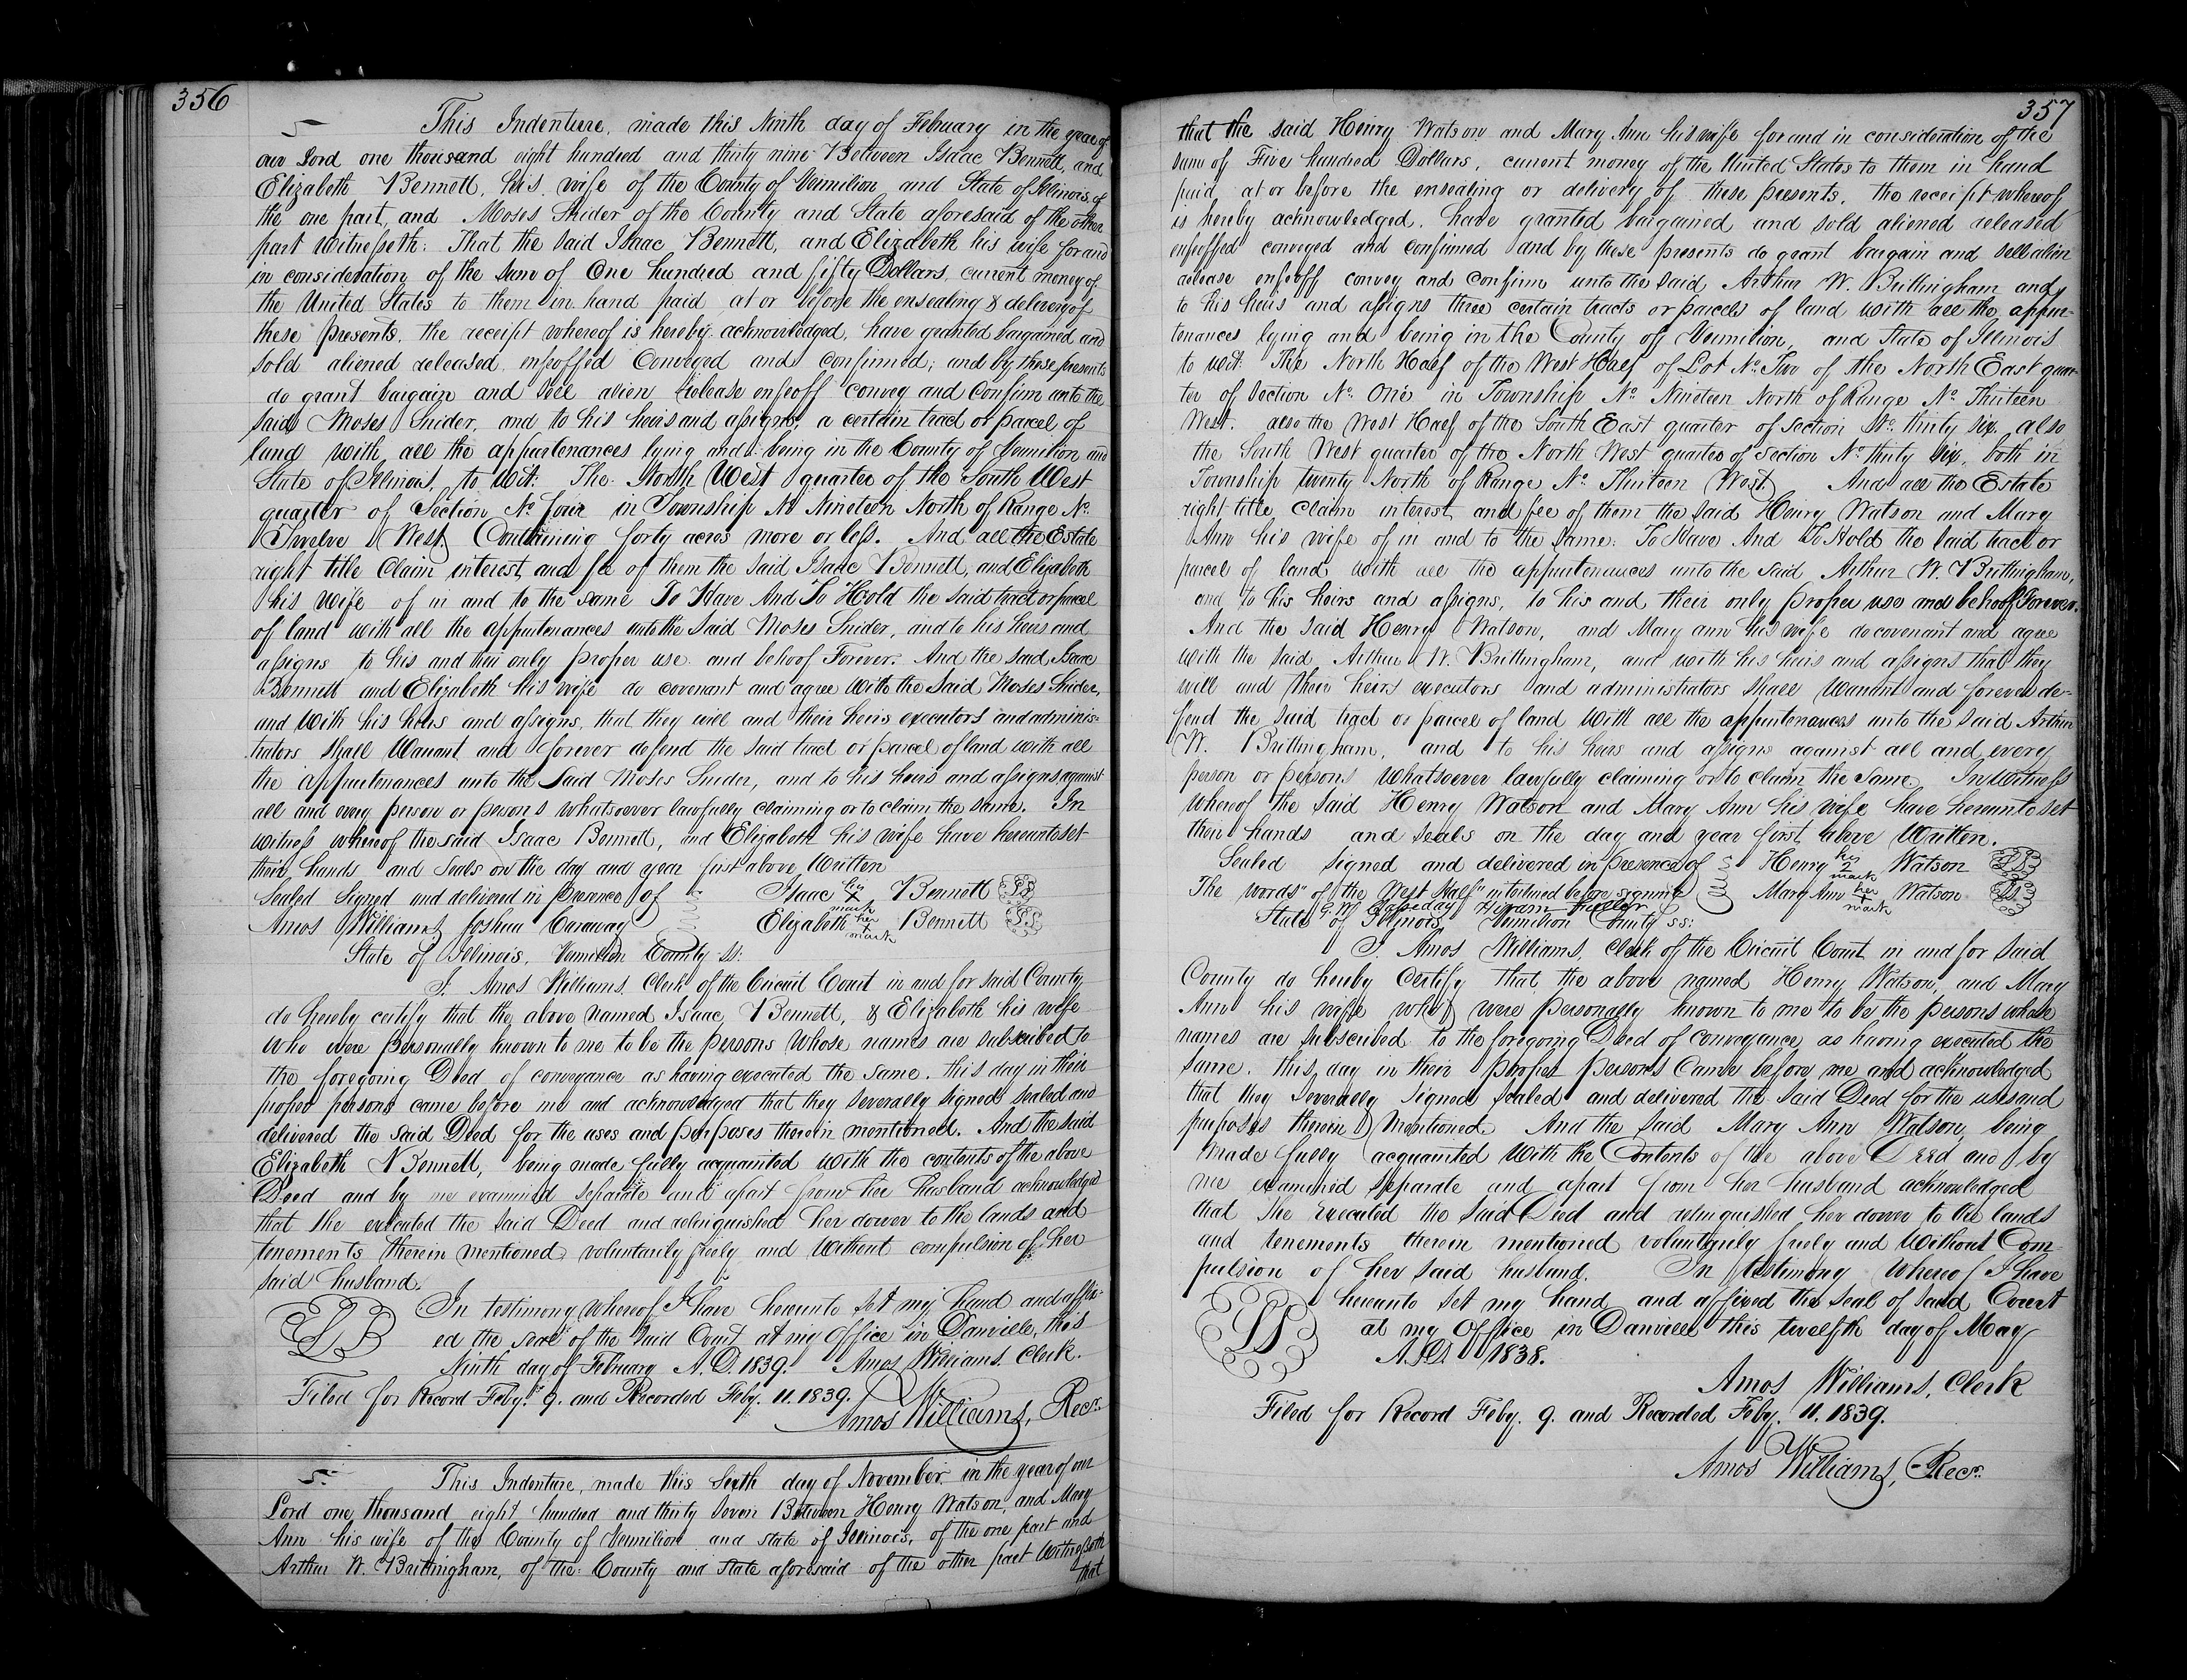 356
5
This Indenture, made this Ninth day of February in the year of
our Lord one thousand eight hundred and thirty nine Between Isaac Bennett, and
Elizabeth Bennett, his wife of the County of Vermilion and State of Illinois, of
the one part, and Moses Snider of the County and State aforesaid of the other
part Witnesseth: That the said Isaac Bennett, and Elizabeth his wife for and
in consideration of the sum of One hundred and fifty Dollars, current money of
the United States to them in hand paid at or before the ensealing & delivery of
these presents, the receipt whereof is hereby acknowledged, have granted bargained and
sold aliened released enfeoffed Conveyed and confirmed; and by these presents
do grant bargain and sell alien release enfeoff convey and confirm unto the
said Moses Snider, and to his heirs and assigns, a certain tract or parcel of
land with all the appurtenances lying and being in the County of Vermilion and
State of Illinois, to wit: The North West quarter of the South West
quarter of Section No four in Township No Nineteen North of Range No.
Twelve West. Containing forty acres more or less. And all the Estate
right title Claim interest and fee of them the said Isaac Bennett, and Elizabeth
his wife of in and to the same To Have And To Hold the said tract or parcel
of land with all the appurtenances unto the said Moses Snider, and to his heirs and
assigns to his and their only proper use and behoof Forever. And the said Isaac
Bennett and Elizabeth his wife do covenant and agree with the said Moses Snider,
and with his heirs and assigns, that they will and their heirs executors and adminis-
trators shall Warrant and forever defend the said tract or parcel of land with all
the appurtenances unto the said Moses Snider, and to his heirs and assigns against
all and every person or persons whatsoever lawfully claiming or to claim the same. In
witness whereof the said Isaac Bennett, and Elizabeth his wife have hereunto set
their hands and seals on the day and year first above Written
Sealed Signed and delivered in presence of Isaac his X mark Bennett LS
Amos Williams Joshua Caraway Elizabeth her + mark Bennett LS
State of Illinois, Vermilion County ss:
I. Amos Williams, Clerk of the Circuit Court in and for said County
do hereby certify that the above named Isaac Bennett, & Elizabeth his wife
who were personally known to me to be the persons whose names are subscribed to
the foregoing Deed of conveyance as having executed the same. this day in their
proper persons came before me and acknowledged that they severally signed sealed and
delivered the said Deed for the uses and purposes therein mentioned. And the said
Elizabeth Bennett, being made fully acquainted with the contents of the above
Deed and by me examined separate and apart from her husband acknowledged
that she executed the said Deed and relinquished her dower to the lands and
tenements therein mentioned voluntarily freely and without compulsion of her
said husband.
LS In testimony whereof I have hereunto set my hand and affix-
ed the seal of the said Court at my Office in Danville, this
Ninth day of February A.D. 1839. Amos Williams. Clerk.
Filed for Record Feby. 9. and Recorded Feby. 11. 1839.
Amos Williams, Recr.
5
This Indenture, made this Sixth day of November in the year of our
Lord one thousand eight hundred and thirty seven Between Henry Watson, and Mary
Ann his wife of the County of Vermilion and State of Illinois, of the one part and
Arthur W. Brittingham, of the County and State aforesaid of the other part Witnesseth
that
357
that the said Henry Watson and Mary Ann his wife for and in consideration of the
sum of Five hundred Dollars, current money of the United States to them in hand
paid at or before the ensealing or delivery of these presents, the receipt whereof
is hereby acknowledged, have granted bargained and sold aliened released
enfeoffed conveyed and confirmed and by these presents do grant bargain and sell alien
release enfeoff convey and confirm unto the said Arthur W. Brittingham and
to his heirs and assigns three certain tracts or parcels of land with all the appur-
tenances lying and being in the County of Vermilion, and State of Illinois
to wit: The North Half of the West Half of Lot No. Two of the North East quar-
ter of Section No. One in Township No. Nineteen North of Range No. Thirteen
West. also the West Half of the South East quarter of Section No. thirty six, also
the South West quarter of the North West quarter of Section No. thirty six, both in
Township twenty North of Range No. Thirteen West. And all the Estate
right title claim interest and fee of them the said Henry Watson and Mary
Ann his wife of in and to the same: To Have And To Hold the said tract or
parcel of land with all the appurtenances unto the said Arthur W. Brittingham,
and to his heirs and assigns, to his and their only proper use and behoof Forever.
And the said Henry Watson, and Mary ann his wife do covenant and agree
with the said Arthur W. Brittingham, and with his heirs and assigns that they
will and their heirs executors and administrators shall Warrant and forever de-
fend the said tract or parcel of land with all the appurtenances unto the said Arthur
W. Brittingham, and to his heirs and assigns against all and every
person or persons whatsoever lawfully claiming or to claim the same. In witness
Whereof the said Henry Watson and Mary Ann his wife have hereunto set
their hands and seals on the day and year first above Written.
Sealed signed and delivered in presence of Henry his 2 mark Watson LS
The words "of the West Half" interlined before signing Mary Ann her + mark Watson LS
G. W. Casseday Hiram
State of Illinois, Vermilion County ss:
I. Amos Williams, Clerk of the Circuit Court in and for said
County do hereby Certify that the above named Henry Watson, and Mary
Ann his wife who were personally known to me to be the persons whose
names are subscribed to the foregoing Deed of conveyance as having executed the
same. this day in their proper persons came before me and acknowledged
that they severally signed sealed and delivered the said Deed for the uses and
purposes therein mentioned. And the said Mary Ann Watson, being
made fully acquainted with the Contents of the above Deed and by
me examined separate and apart from her husband acknowledged
that she executed the said Deed and relinquished her dower to the lands
and tenements therein mentioned voluntarily freely and without Com-
pulsion of her said husband. In testimony whereof I have
LS hereunto set my hand and affixed the seal of said Court
at my Office in Danville this twelfth day of May
A.D. 1838.
Amos Williams, Clerk
Filed for Record Feby. 9. and Recorded Feby. 11. 1839.
Amos Williams, Recr.